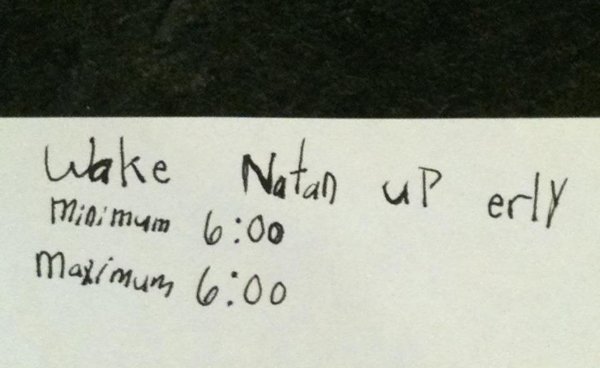 Wake Natan up erly
Minimum 6:00
Maximum 6:00